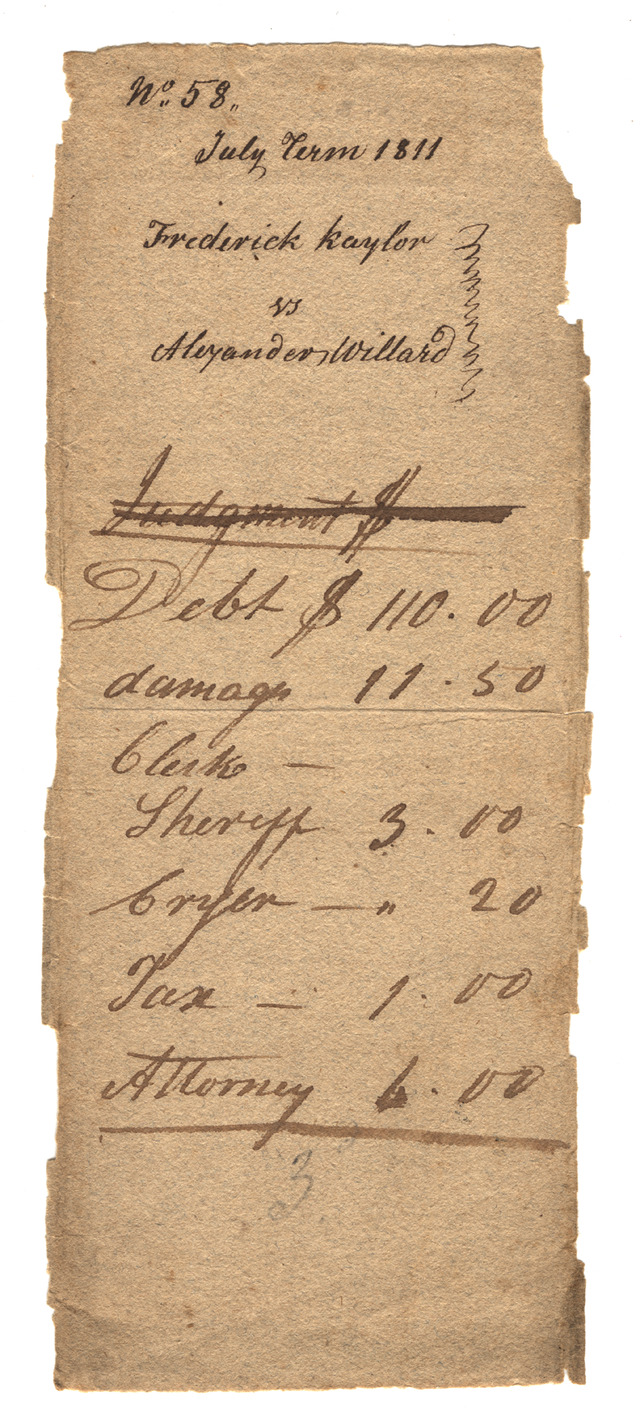 No. 58,,
July Term 1811
Frederick Kaylor
vs
Alexander Willard
Judgment $
Debt $ 110.00
damage 11.50
Clerk —
Sheriff 3.00
Cryer — " 20
Tax — 1.00
Attorney 6.00
3